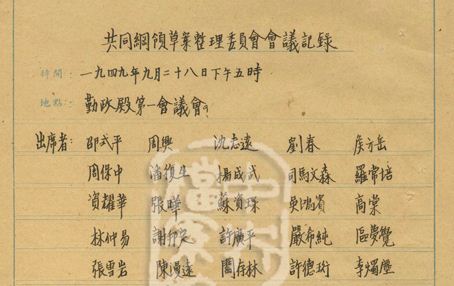 共同綱領草案整理委員會會議記錄
時間：一九四九年九月二十八日下午五時
地點：勤政殿第一會議會。
出席者：邵式平 周興 沈志遠 劉春 侯方岳
周保中 潘復生 楊成武 司馬文森 羅常培
資耀華 張曄 蘇資琛 吳鴻賓 高棠
林仲易 許廣平 嚴希純 區夢覺
張雪岩 陳漫遠 閻存林 許德珩 李燭塵